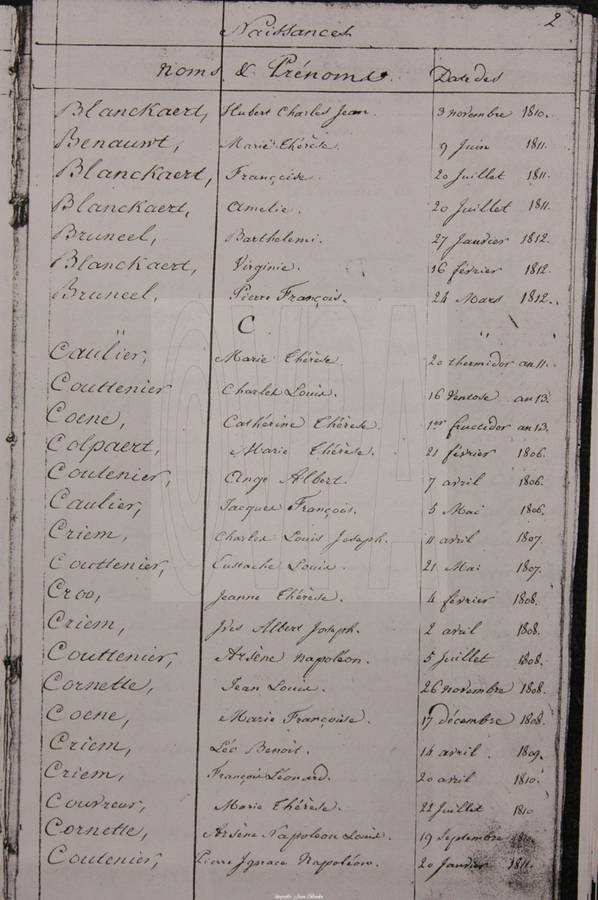 2
Naissances
Noms & Prénoms. Date des
Blanckaert, Hubert Charles Jean. 3 novembre 1810.
Benauwt, Marie Thérèse. 9 Juin 1811.
Blanckaert, Françoise. 20 Juillet 1811.
Blanckaert, Amelie. 20 Juillet 1811.
Bruneel, Barthelemi. 27 Janvier 1812.
Blanckaert, Virginie. 16 février 1812.
Bruneel, Pierre François. 24 Mars 1812.
C. "
Caulier, Marie Thérèse. 20 thermidor an 11.
Couttenier Charles Louis. 16 Ventose an 13.
Coene, Cathérine Thérèse. 1er fructidor an 13.
Colpaert, Marie Thérèse. 21 février 1806.
Coutenier, Ange Albert. 7 avril 1806.
Caulier, Jacques François. 5 Mai 1806.
Criem, Charles Louis Joseph. 11 avril 1807.
Couttenier, Eustache Louis. 21 Mai 1807.
Croo, Jeanne Thérèse. 4 février 1808.
Criem, Albert Joseph. 2 avril 1808.
Couttenier, Arsène Napoléon. 5 Juillet 1808.
Cornette, Jean Louis. 26 novembre 1808.
Coene, Marie Françoise. 17 décembre 1808.
Criem, Léo Benoit. 14 avril. 1809.
Criem, François Léonard. 20 avril 1810.
Couvreur, Marie Thérèse. 22 Juillet 1810
Cornette, Arsène Napoleon Louis. 19 Septembre 1810.
Coutenier, Pierre Ignace Napoléon. 20 Janvier 1811.